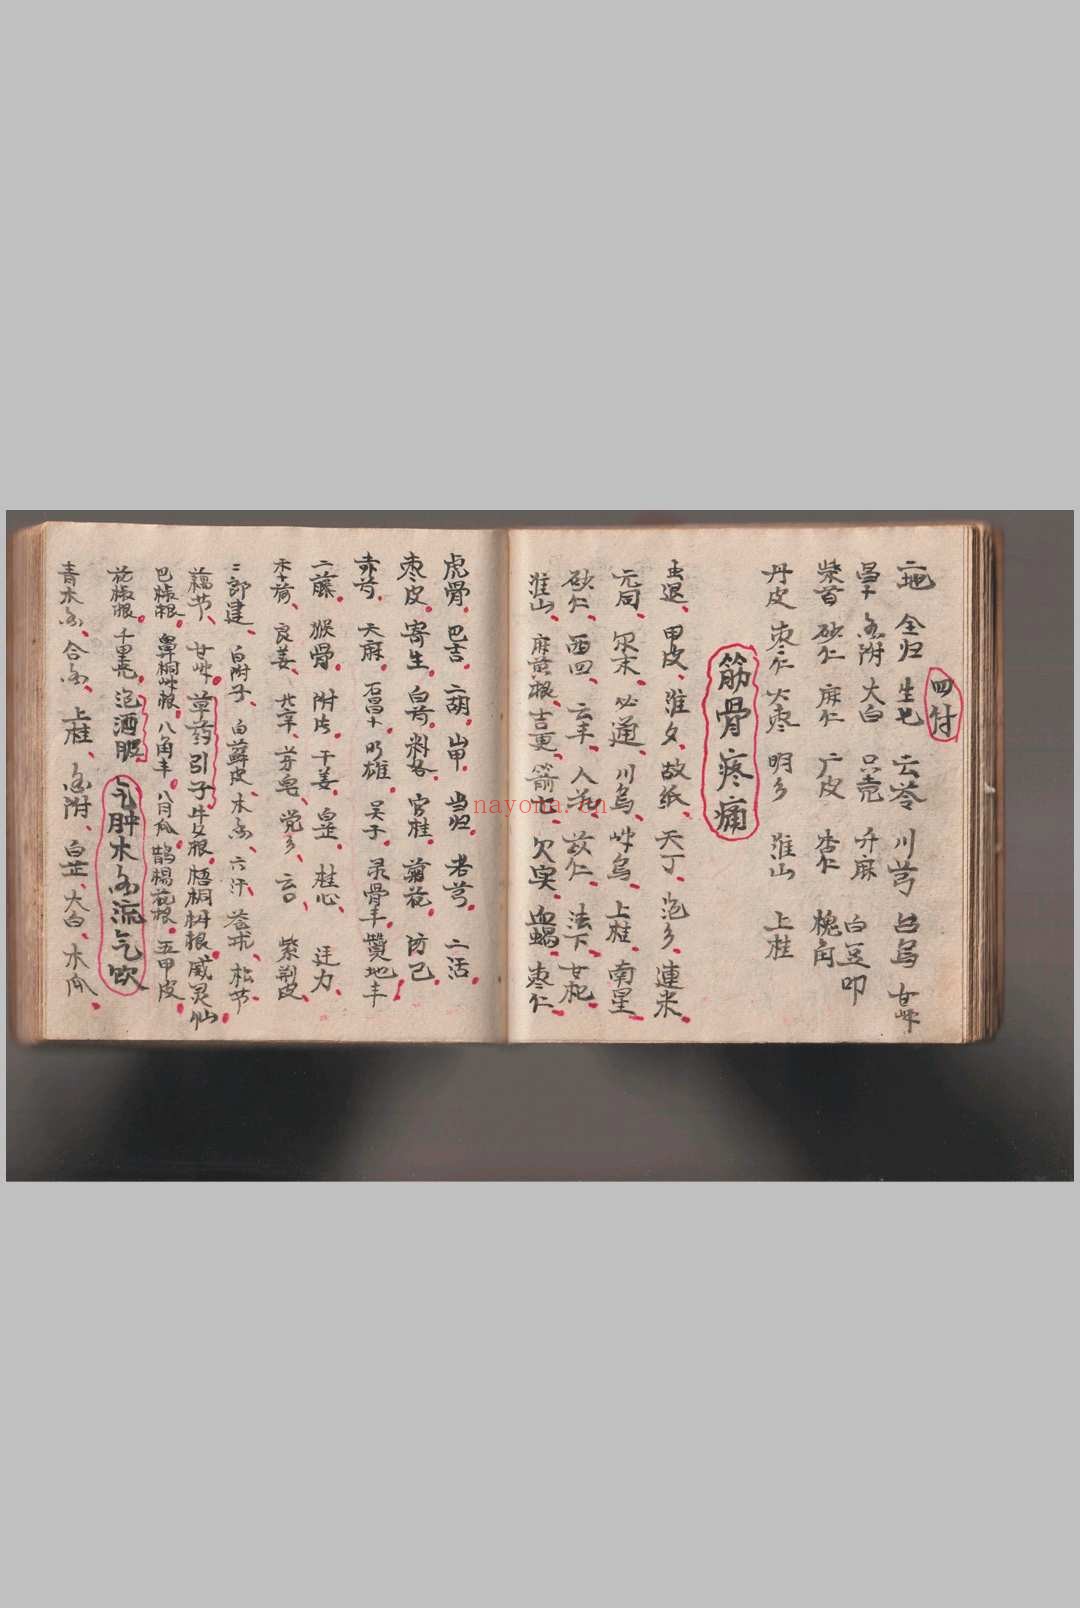 四付
二地 全归 生七 云苓 川芎 台乌 甘艸
附 大白 只壳 升麻 白豆叩
柴首 砂仁 麻仁 广皮 杏仁 槐角
丹皮 枣仁 大枣 明乡 淮山 上桂
筋骨疼痛
虫退 甲皮 淮夕 故纸 天丁 泡乡 連米
元同 必通 川乌 艸乌 上桂 南星
砂仁 西四 云丰 人花 苡仁 法下 甘杞
淮山 麻黄根 吉更 箭七 欠实 血蝎 枣仁
虎骨 巴吉 二胡 山甲 当归 老芎 二活
枣皮 寄生 白芍 料各 官桂 菊花 防己
赤芍 天麻 石昌 明雄 吴于 录骨丰 贊地丰
二藤 猴骨 附片 干姜 白芷 桂心 迋力
木荷 良姜 北辛 牙皂 党乡 云 紫荆皮
二郎建 白附子 白蘚皮 木香 六汗 苍术 松节
藕节 甘艸 草药引子 牛夕根 梧桐树根 威灵仙
巴根 鼻桐艸根 八角丰 八月瓜 鹄楊花根 五甲皮
花根 千里 泡酒服 气肿木香流气饮
青木香 合香 上桂 香附 白芷 大白 木瓜
nayona.cn